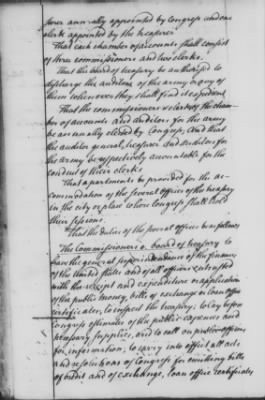 surer annually appointed by Congress and one
clerk appointed by the treasurer
That each chamber of accounts shall consist
of three commissioners and two clerks.
That the board of treasury be authorised to
discharge the auditors of the army or any of
them whenever they shall find it expedient
That the commissioners & clerks of the cham-
ber of accounts and Auditors for the army
be annually elected by Congress, And that
the auditor general, treasurer and Auditors for
the army be respectively accountable for the
conduct of their clerks
That apartments be provided for the ac-
commodation of the several offices of the treasury
in the city or place where Congress shall hold
their sessions.
That the duties of the several officers be as follows
The Commissioners or board of treasury to
have the general superintendence of the finances
of the United States and of all officers entrusted
with the receipt and expenditure or application
of the public money, bills of exchange or loan office
certificates; to inspect the treasury; to lay before
Congress estimates of the public expences and
necessary supplies, and to call on public officers
for information; to carry into effect all acts
and resolutions of Congress for emitting bills
of credit and of exchange, loan office certificates